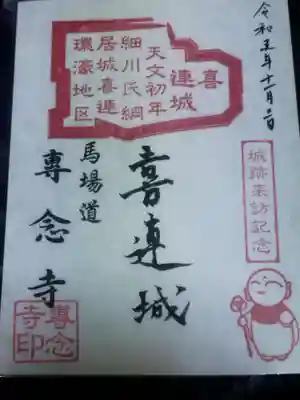 令和五年十一月三日
喜連城
天文初年
細川氏綱
居城喜連
環濠地区
城跡来訪記念
喜連城
馬場道
専念寺
専念
寺印